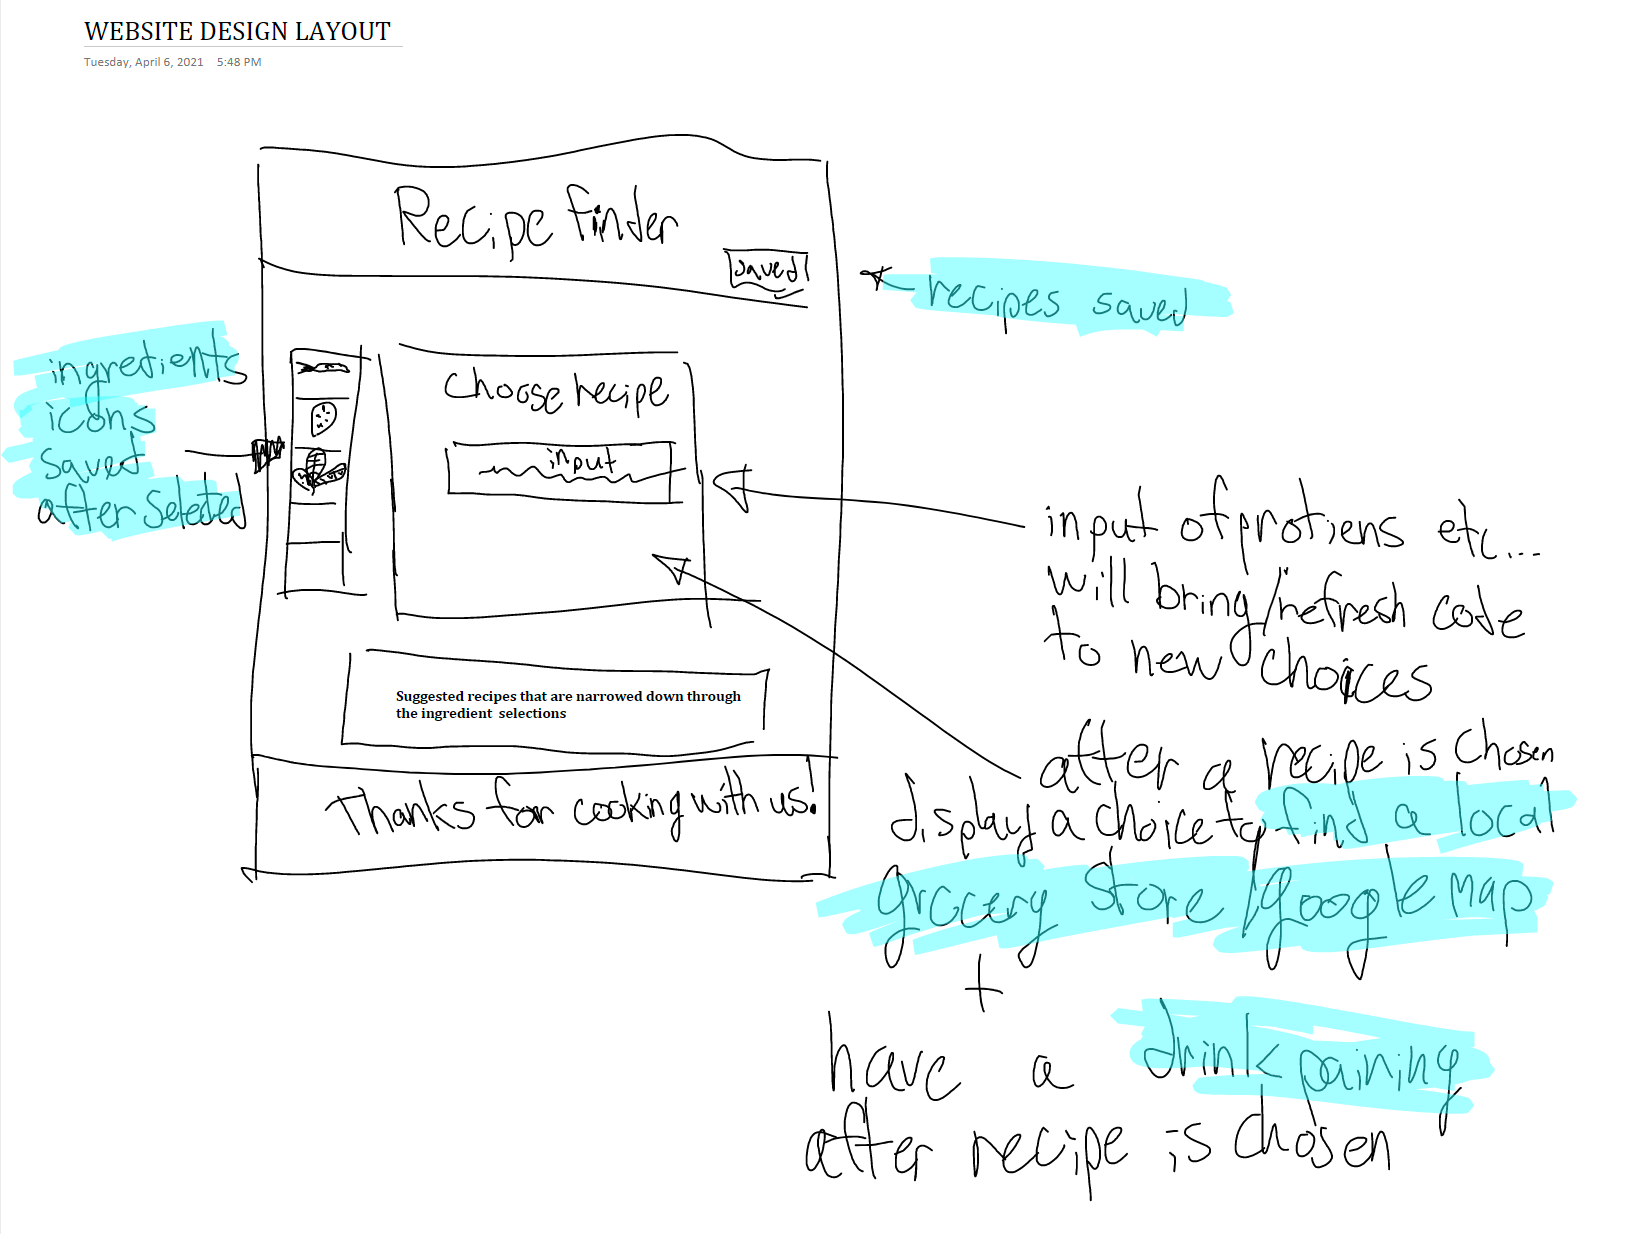 WEBSITE DESIGN LAYOUT
Tuesday, April 6, 2021 5:48 PM
Recipe finder
saved
recipes saved
ingredients
icons
saved
after seleted
Choose recipe
input
input of protiens etc...
will bring/refresh code
to new choices
Suggested recipes that are narrowed down through
the ingredient selections
after a recipe is chosen
display a choice to find a local
grocery store /google map
+
have a drink pairing
after recipe is chosen
Thanks for cooking with us!